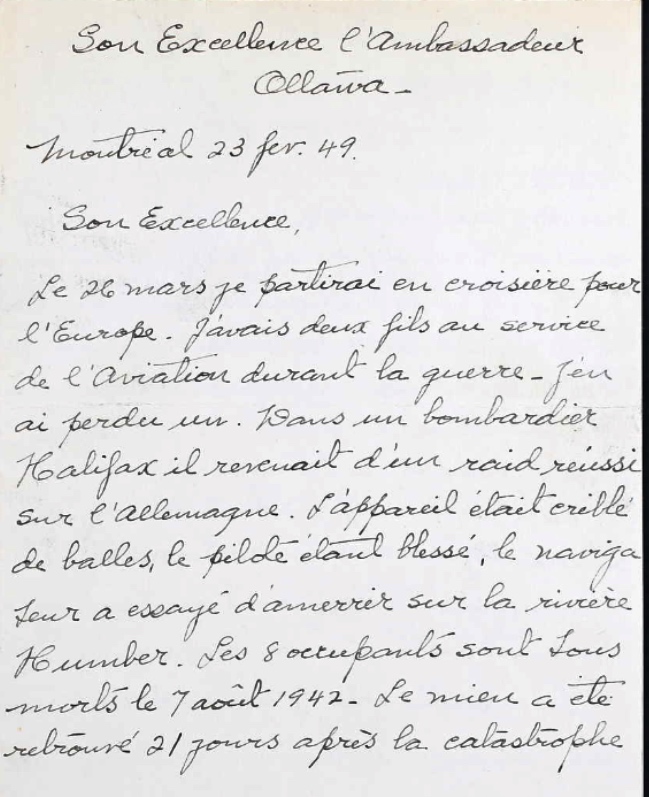 Son Excellence l'Ambassadeur
Ottawa -
Montréal 23 fev. 49.
Son Excellence,
Le 26 mars je partirai en croisière pour
l'Europe. J'avais deux fils au service
de l'Aviation durant la guerre - J'en
ai perdu un. Dans un bombardier
Halifax il revenait d'un raid réussi
sur l'Allemagne. L'appareil était criblé
de balles, le pilote étant blessé, le naviga
teur a essayé d'amerrir sur la rivière
Humber. Les 8 occupants sont tous
morts le 7 août 1942 - Le mien a été
retrouvé 21 jours après la catastrophe